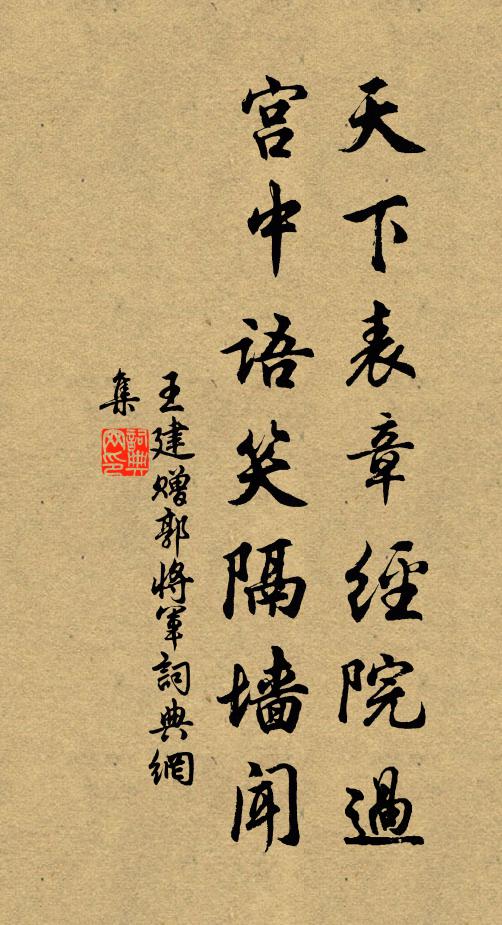 天下表章經院過
宫中语笑隔墙闻
王建赠郭将军詞典網
集
詞典网印